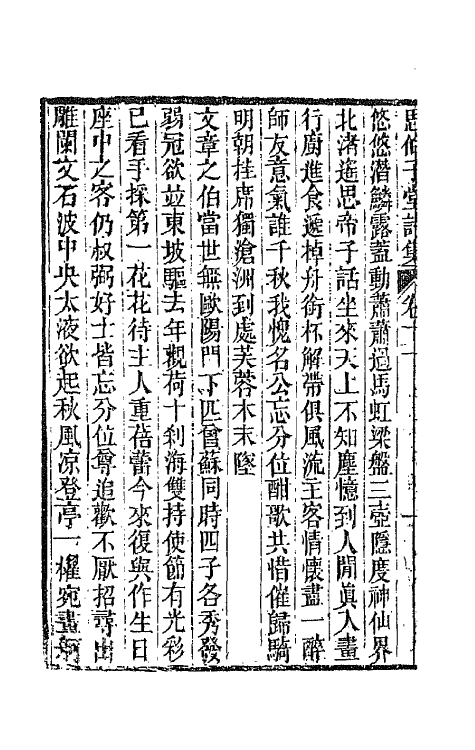 思伯子堂詩集 卷十二
悠悠潛鱗露蓋動蕭蕭過馬虹梁盤三壺隱度神仙界
北渚遙思帝子話坐來天上不知塵憶到人閒眞入畫
行廚進食遞棹舟銜杯解帶俱風流主客情懷盡一醉
師友意氣誰千秋我愧名公忘分位酣歌共惜催歸騎
明朝挂席獨滄洲到處芙蓉木末墜
文章之伯當世無歐陽門下匹曾蘇同時四子各秀發
弱冠欲並東坡驅去年觀荷十刹海雙持使節有光彩
已看手採第一花花待主人重蓓蕾今來復與作生日
座中之客仍叔弼好士皆忘分位尊追歡不厭招尋出
雕闌文石波中央太液欲起秋風涼登亭一櫂宛畫